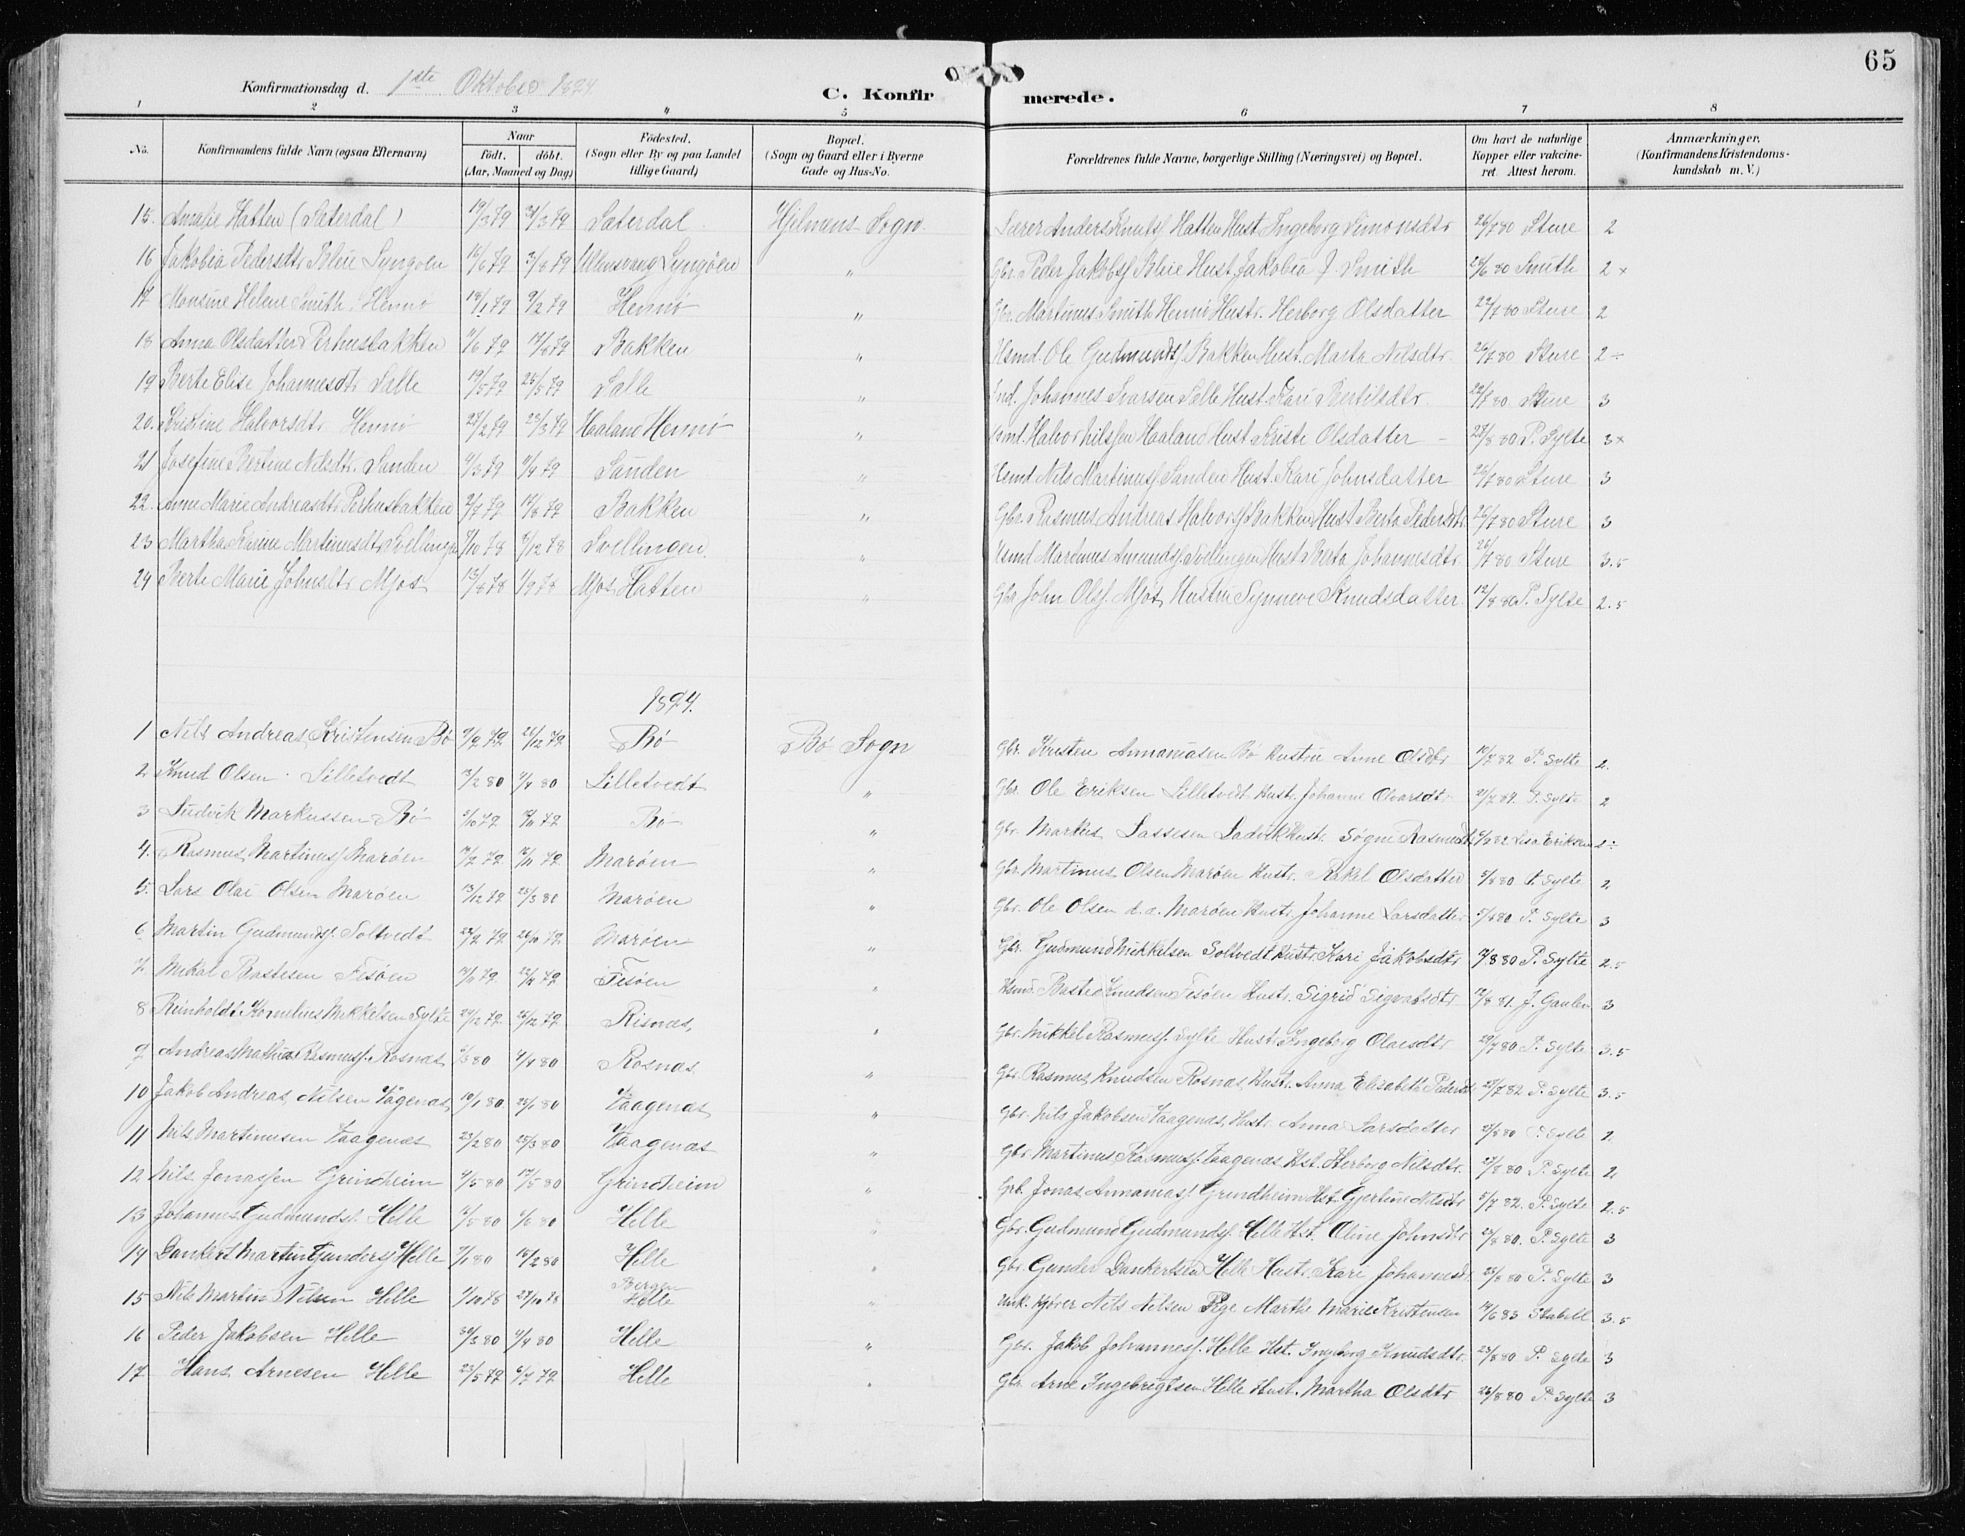 65
Konfirmationsdag d. 1ste Oktober 1894.
C. Konfirmerede.
1 2 3 4 5 6 7 8
No. Konfirmandens fulde Navn (ogsaa Efternavn) Naar født. døbt. (Aar, Maaned og Dag) Fødested. (Sogn eller By og paa Landet tillige Gaard) Bopæl. (Sogn og Gaard eller i Byerne Gade og Hus-No. Forældrenes fulde Navne, borgerlige Stilling (Næringsvei) og Bopæl. Om havt de naturlige Kopper eller vakcineret. Attest herom. Anmærkninger. (Konfirmandens Kristendomskundskab m. V.)
15. Amalie Hatten (Sæterdal) 19/3 79 31/3 79 Sæterdal Hjelmens Sogn. Lærer Anders Knuts. Hatten Hust. Ingeborg Simonsdtr 26/7 80 Sture 2
16 Jakobia Pedersdtr Bleie Lyngøen 16/6 79 3/8 79 Ullensvang Lyngøen " Gbr. Peder Jakobs. Bleie Hust. Jakobia J. Smith 28/6 80 Smith 2 ×
17 Monsine Helene Smith Hennø 18/1 79 9/2 79 Hennø " Gbr. Martinus Smith Hennø Hustr. Herborg Olsdatter 27/7 80 Sture 2
18 Anna Olsdatter Perhusbakken 11/6 79 17/6 79 Bakken " Hsmd. Ole Gudmunds. Bakken Hust. Marta Nilsdtr. 26/7 80 Sture 2 ÷
19 Berte Elise Johannesdtr Sælle 19/5 79 25/5 79 Sælle " Ind. Johannes Ivarsen Selle Hust. Kari Bertilsdtr 27/7 80 Sture 3
20. Kristine Halvorsdtr Hennø 27/2 79 23/3 79 Haaland Hennø " Halvor Nilssen Haaland Hust. Kriste Olsdatter 28/8 80 P. Sylte 3 ×
21 Josefine Bertine Nilsdtr. Sanden 4/3 79 11/4 79 Sanden " Hsmd Nils Martinus. Sanden Hust. Kari Johnsdatter 26/7 80 Sture 3
22. Anne Marie Andreasdtr Perhusbakken 2/7 79 17/8 79 Bakken " Gbr. Rasmus Andreas Halvors. Bakken Hust Berta Pedersdtr 26/7 80 Sture 3
23 Martha Karine Martinusdtr Svellingen 7/10 78 8/12 78 Svellingen " Hsmd Martinus Amunds. Svellingen Hust Berta Johannesdtr 26/7 80 Sture 3.5
24 Berte Marie Johnsdtr Mjøs 13/8 78 1/9 78 Mjøs Hatten " Gbr John Ols. Mjøs Hustru Synneve Knudsdatter. 12/8 80 P. Sylte 2.5
1894.
1 Nils Andreas Kristensen Bø 9/9 79 21/12 79 Bø Bø Sogn Gbr. Kristen Annaniasen Bø Hustru Anne Olsdtr 10/8 82 P. Sylte 2.
2 Knud Olsen Lilletvedt 3/2 80 4/4 80 Lilletvedt " Gbr. Ole Eriksen Lilletvedt Hustr. Johanne Olvarsdtr 21/7 84. P. Sylte 2
3 Ludvik Markussen Bø 5/10 79 79 Bø " Gbr. Markus Lassesen Ladvik Hustr. Søgne Rasmusdtr 82 Lisa Eriksen 2 ÷
4. Rasmus Martinus. Marøen 79 79 Marøen " Gbr. Martinus Olsen Marøen Hustr. Rakel Olsdatter 5/8 80 P. Sylte 2
5. Lars Olai Olsen Marøen 13/12 79 25/3 80 Marøen " Gbr. Ole Olsen d.æ. Marøen Hustr. Johanne Larsdatter 5/8 80 P. Sylte 3
6 Martin Gudmunds. Soltvedt 79 26/10 79 Marøen " Gbr. Gudmund Mikkelsen Soltvedt Hustr. Kari Jakobsdtr 7/8 80 P. Sylte 2.5
7. Mikal Bastesen Fesøen 79 79 Fesøen " Hsmd. Baste Knudsen Fesøen Hustr. Sigrid Sigvatsdtr 12/8 81. J. Gaulen 3
8 Reinholdt Kornelius Mikkelsen Sylte 24/12 79 28/12 79 Risnæs " Gbr. Mikkel Rasmus. Sylte Hust. Ingeborg Olaesdtr 29/7 80 P. Sylte 3.5
9 Andreas Mathias Rasmus. Rosnæs /3 80 4/4 80 Rosnæs " Gbr. Rasmus Knudsen Rosnæs, Hust. Anna Elisabeth Pedersdt 28/7 82 P. Sylte 3.5
10 Jakob Andreas Nilsen Vågenæs 10/1 80 25/1 80 Vaagenæs " Gbr. Nils Jakobsen Vaagenæs, Hust. Anna Larsdatter 80 P. Sylte 2.
11 Nils Martinusen Vaagenæs 23/2 80 25/3 80 Vaagenæs " Gbr. Martinus Rasmus. Vaagenæs Hst. Herborg Nilsdtr. 27/8 80 P. Sylte 2
12 Nils Jonassen Grindheim 4/5 80 17/5 80 Grindheim " Grb. Jonas Annanias. Grindheim Hst. Gjertine Nilsdtr 5/7 82. P. Sylte 2.5
13 Johannes Gudmunds. Helle /5 80 6/6 80 Helle " Gbr. Gudmund Gudmunds. Helle Hst. Oline Johnsdtr 23/8 80. P. Sylte 3
14 Dankert Martin Gunders. Helle 7/1 80 15/2 80 Helle " Gbr Gunder Dankertsen Helle Hust. Kari Johannesdt. 23/8 80 P. Sylte 3
15 Nils Martin Nilsen Helle 1/10 78 27/10 78 Bergen Helle " Unk. Kjører Nils Nilsen Pige Marthe Marie Kristensen 14/6 83 Stabell 3.5
16 Peder Jakobsen Helle 30/3 80 4/4 80 Helle " Gbr. Jakob Johannes. Helle Hst. Ingeborg Knudsdtr. 23/8 80 P. Sylte 3
17 Hans Arnesen Helle 23/5 79 6/7 79 Helle " Gbr Arne Ingebrigtsen Helle Hust. Martha Olsdtr 23/8 80 P. Sylte 3